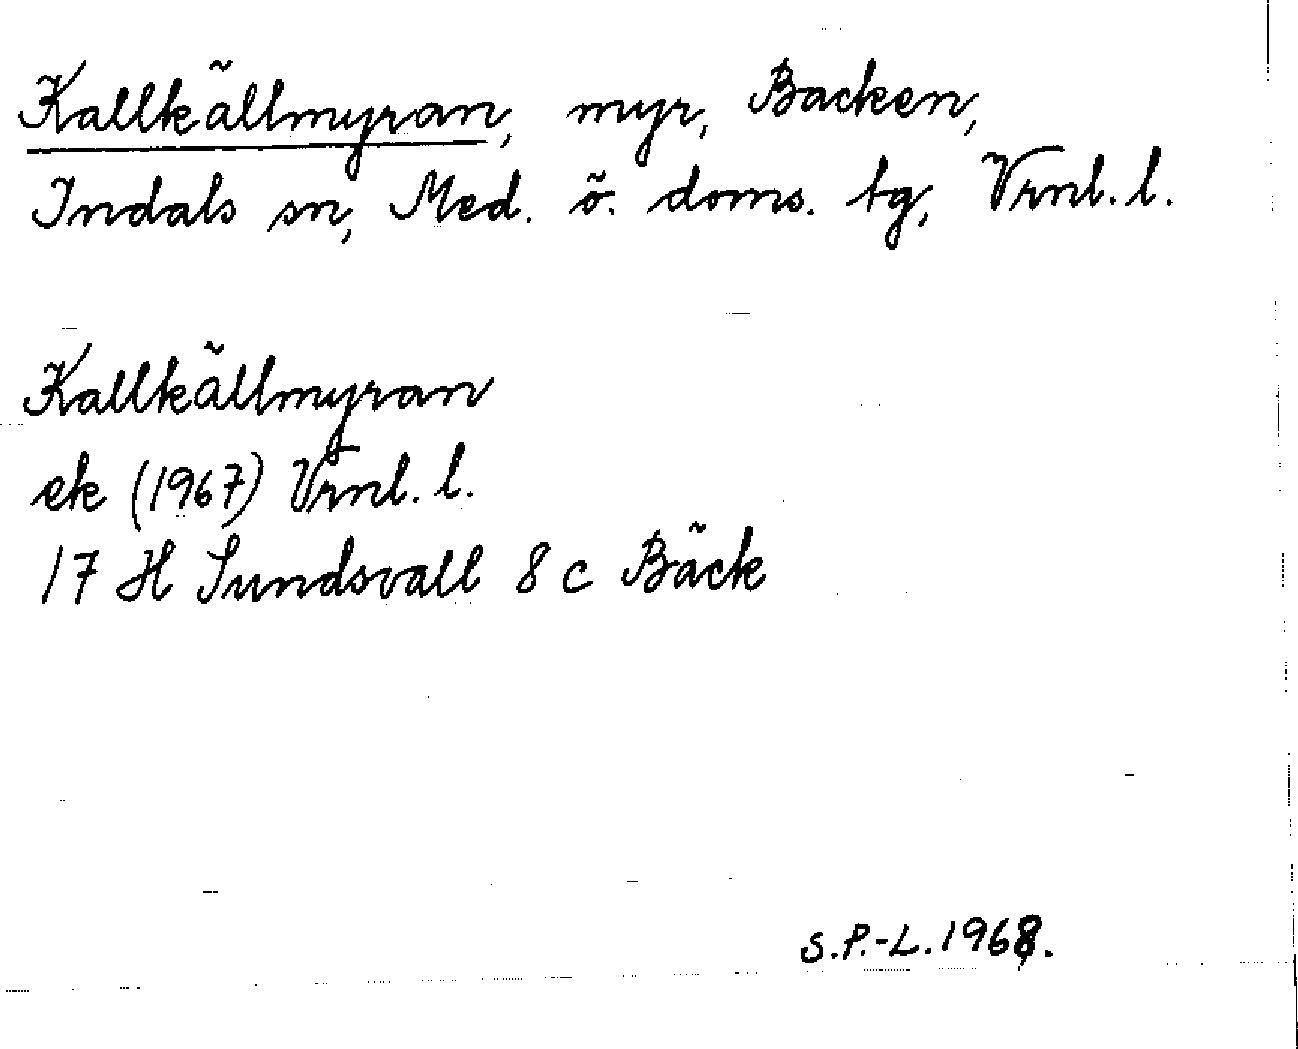 Kallkällmyran, myr, Backen,
Indals sn, Med. ö. doms. tg, Vrnl. l.
Kallkällmyran
ek (1967) Vrnl. l.
17 H Sundsvall 8 c Bäck
S.P.-L. 1968.